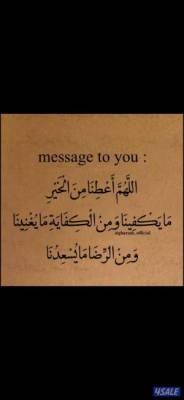 message to you :
اللَّهُمَّ أَعْطِنَا مِنَ الْخَيْرِ
مَا يَكْفِينَا وَمِنَ الْكِفَايَةِ مَا يُغْنِينَا
وَمِنَ الرِّضَا مَا يُسْعِدُنَا
4SALE